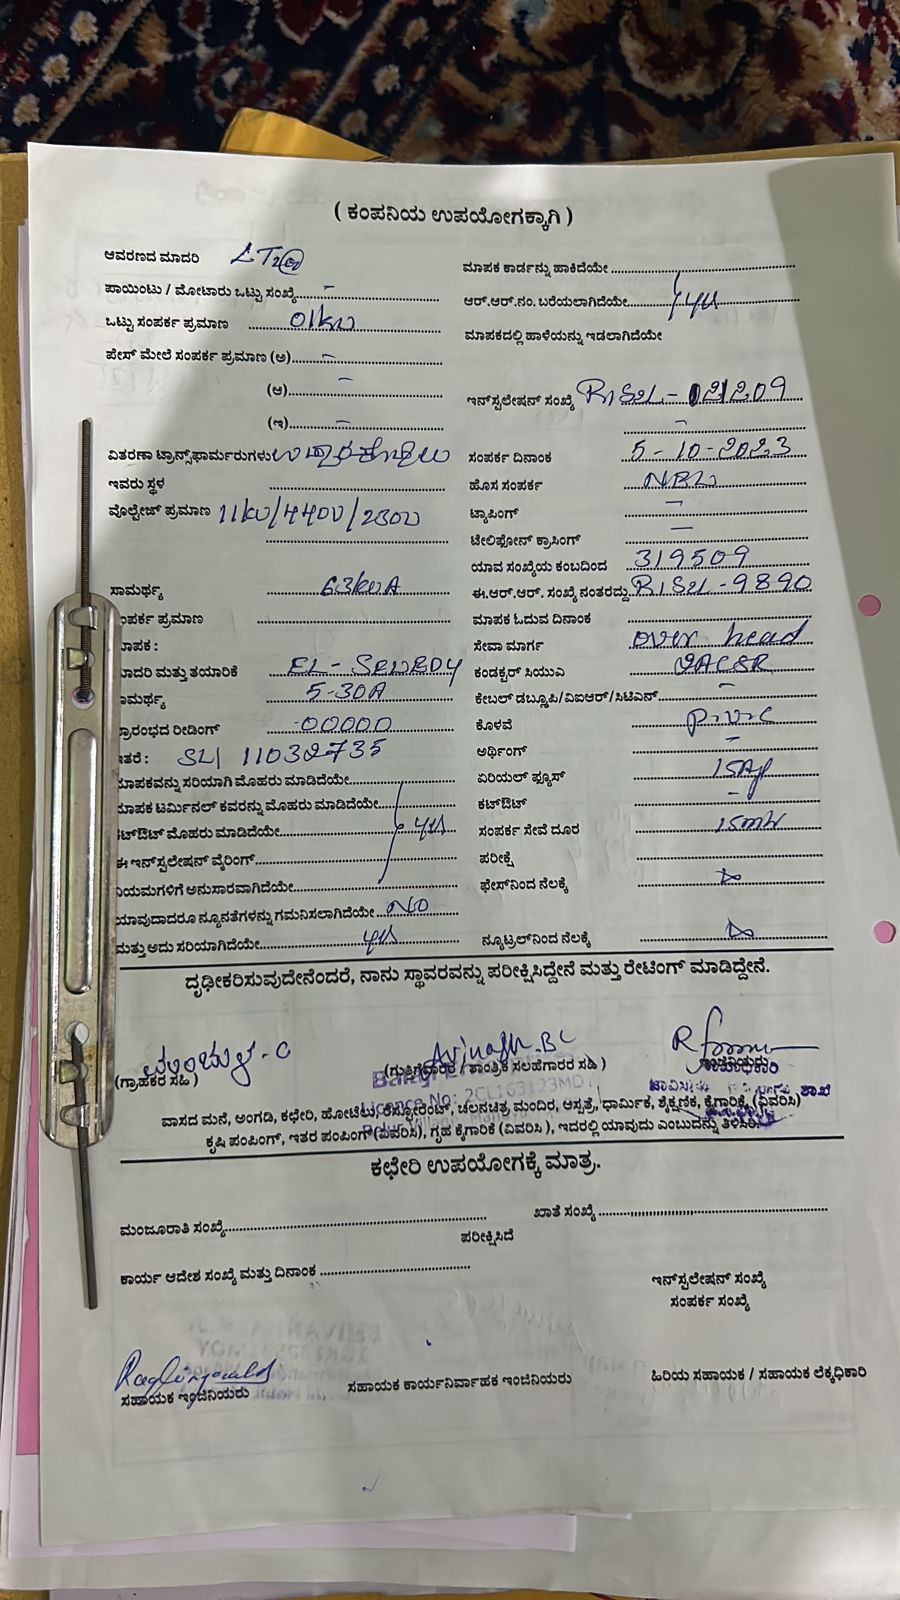 ( ಕಂಪನಿಯ ಉಪಯೋಗಕ್ಕಾಗಿ )
ಆವರಣದ ಮಾದರಿ LT2
ಮಾಪಕ ಕಾರ್ಡನ್ನು ಹಾಕಿದೆಯೇ
ಪಾಯಿಂಟು / ಮೋಟಾರು ಒಟ್ಟು ಸಂಖ್ಯೆ -
ಆರ್.ಆರ್.ನಂ. ಬರೆಯಲಾಗಿದೆಯೇ yes
ಒಟ್ಟು ಸಂಪರ್ಕ ಪ್ರಮಾಣ 01kw
ಮಾಪಕದಲ್ಲಿ ಹಾಳೆಯನ್ನು ಇಡಲಾಗಿದೆಯೇ
ಪೇಸ್ ಮೇಲೆ ಸಂಪರ್ಕ ಪ್ರಮಾಣ (ಅ) -
(ಆ) -
ಇನ್‌ಸ್ಟಲೇಷನ್ ಸಂಖ್ಯೆ
(ಇ) -
ವಿತರಣಾ ಟ್ರಾನ್ಸ್‌ಫಾರ್ಮರುಗಳು
ಸಂಪರ್ಕ ದಿನಾಂಕ 5-10-2023
ಇವರು ಸ್ಥಳ
ಹೊಸ ಸಂಪರ್ಕ New
ವೊಲ್ಟೇಜ್ ಪ್ರಮಾಣ 11kv/440v/230v
ಟ್ಯಾಪಿಂಗ್ -
ಟೇಲಿಫೋನ್ ಕ್ರಾಸಿಂಗ್ -
ಯಾವ ಸಂಖ್ಯೆಯ ಕಂಬದಿಂದ 319509
ಸಾಮರ್ಥ್ಯ 63kvA
ಈ.ಆರ್.ಆರ್. ಸಂಖ್ಯೆ ನಂತರದ್ದು -9890
ಂಪರ್ಕ ಪ್ರಮಾಣ
ಮಾಪಕ ಓದುವ ದಿನಾಂಕ
ಾಪಕ :
ಸೇವಾ ಮಾರ್ಗ over head
ಾದರಿ ಮತ್ತು ತಯಾರಿಕೆ
ಕಂಡಕ್ಟರ್ ಸಿಯುಎ
ಾಮರ್ಥ್ಯ 5-30A
ಕೇಬಲ್ ಡಬ್ಲೂಪಿ/ವಿಐಆರ್/ಸಿಟಿಎನ್ -
್ರಾರಂಭದ ರೀಡಿಂಗ್ 00000
ಕೊಳವೆ P.V.C
ಇತರೆ : 11032735
ಅರ್ಥಿಂಗ್ -
ಮಾಪಕವನ್ನು ಸರಿಯಾಗಿ ಮೊಹರು ಮಾಡಿದೆಯೇ
ಏರಿಯಲ್ ಫ್ಯೂಸ್ 15Ap
ಮಾಪಕ ಟರ್ಮಿನಲ್ ಕವರನ್ನು ಮೊಹರು ಮಾಡಿದೆಯೇ
ಕಟ್‌ಔಟ್ -
ಕಟ್‌ಔಟ್ ಮೊಹರು ಮಾಡಿದೆಯೇ yes
ಸಂಪರ್ಕ ಸೇವೆ ದೂರ
ಈ ಇನ್‌ಸ್ಟಲೇಷನ್ ವೈರಿಂಗ್
ಪರೀಕ್ಷೆ
ನಿಯಮಗಳಿಗೆ ಅನುಸಾರವಾಗಿದೆಯೇ
ಫೇಸ್‌ನಿಂದ ನೆಲಕ್ಕೆ
ಯಾವುದಾದರೂ ನ್ಯೂನತೆಗಳನ್ನು ಗಮನಿಸಲಾಗಿದೆಯೇ NO
ಮತ್ತು ಅದು ಸರಿಯಾಗಿದೆಯೇ yes
ನ್ಯೂಟ್ರಲ್‌ನಿಂದ ನೆಲಕ್ಕೆ
ದೃಢೀಕರಿಸುವುದೇನೆಂದರೆ, ನಾನು ಸ್ಥಾವರವನ್ನು ಪರೀಕ್ಷಿಸಿದ್ದೇನೆ ಮತ್ತು ರೇಟಿಂಗ್ ಮಾಡಿದ್ದೇನೆ.
ಮಂಜುಳ - C
Avinash.BC
(ಗ್ರಾಹಕರ ಸಹಿ )
(ಗುತ್ತಿಗೆದಾರರ / ತಾಂತ್ರಿಕ ಸಲಹೆಗಾರರ ಸಹಿ )
ಇಂಜಿನಿಯರು
Licence No: 2CL163123MD
ಶಾಖೆ
ವಾಸದ ಮನೆ, ಅಂಗಡಿ, ಕಛೇರಿ, ಹೋಟೆಲು, ರೆಸ್ಟೋರೆಂಟ್, ಚಲನಚಿತ್ರ ಮಂದಿರ, ಆಸ್ಪತ್ರೆ, ಧಾರ್ಮಿಕ, ಶೈಕ್ಷಣಿಕ, ಕೈಗಾರಿಕೆ, (ವಿವರಿಸಿ)
ಕೃಷಿ ಪಂಪಿಂಗ್, ಇತರ ಪಂಪಿಂಗ್ (ವಿವರಿಸಿ), ಗೃಹ ಕೈಗಾರಿಕೆ (ವಿವರಿಸಿ ), ಇದರಲ್ಲಿ ಯಾವುದು ಎಂಬುದನ್ನು ತಿಳಿಸಿರಿ.
ಕಛೇರಿ ಉಪಯೋಗಕ್ಕೆ ಮಾತ್ರ.
ಮಂಜೂರಾತಿ ಸಂಖ್ಯೆ
ಖಾತೆ ಸಂಖ್ಯೆ
ಪರೀಕ್ಷಿಸಿದೆ
ಕಾರ್ಯ ಆದೇಶ ಸಂಖ್ಯೆ ಮತ್ತು ದಿನಾಂಕ
ಇನ್‌ಸ್ಟಲೇಷನ್ ಸಂಖ್ಯೆ
ಸಂಪರ್ಕ ಸಂಖ್ಯೆ
ಸಹಾಯಕ ಇಂಜಿನಿಯರು
ಸಹಾಯಕ ಕಾರ್ಯನಿರ್ವಾಹಕ ಇಂಜಿನಿಯರು
ಹಿರಿಯ ಸಹಾಯಕ / ಸಹಾಯಕ ಲೆಕ್ಕಧಿಕಾರಿ